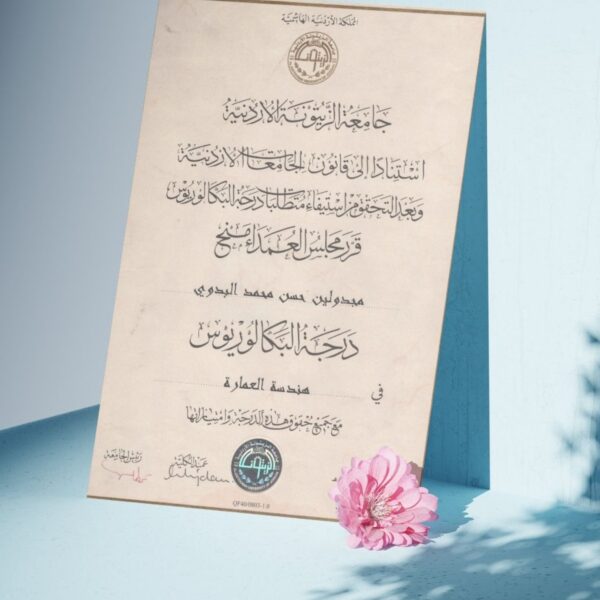 المملكة الأردنية الهاشمية
جامعة الزيتونة الاردنية
استنادا الى قانون الجامعات الاردنية
وبعد التحقق من استيفاء متطلبات درجة البكالوريوس
قرر مجلس العمداء منح
مجدولين حسن محمد البدوي
درجة البكالوريوس
في هندسة العمارة
مع جميع حقوق هذه الدرجة وامتيازاتها
رئيس الجامعة عميد الكلية
QF40/0803-1.0